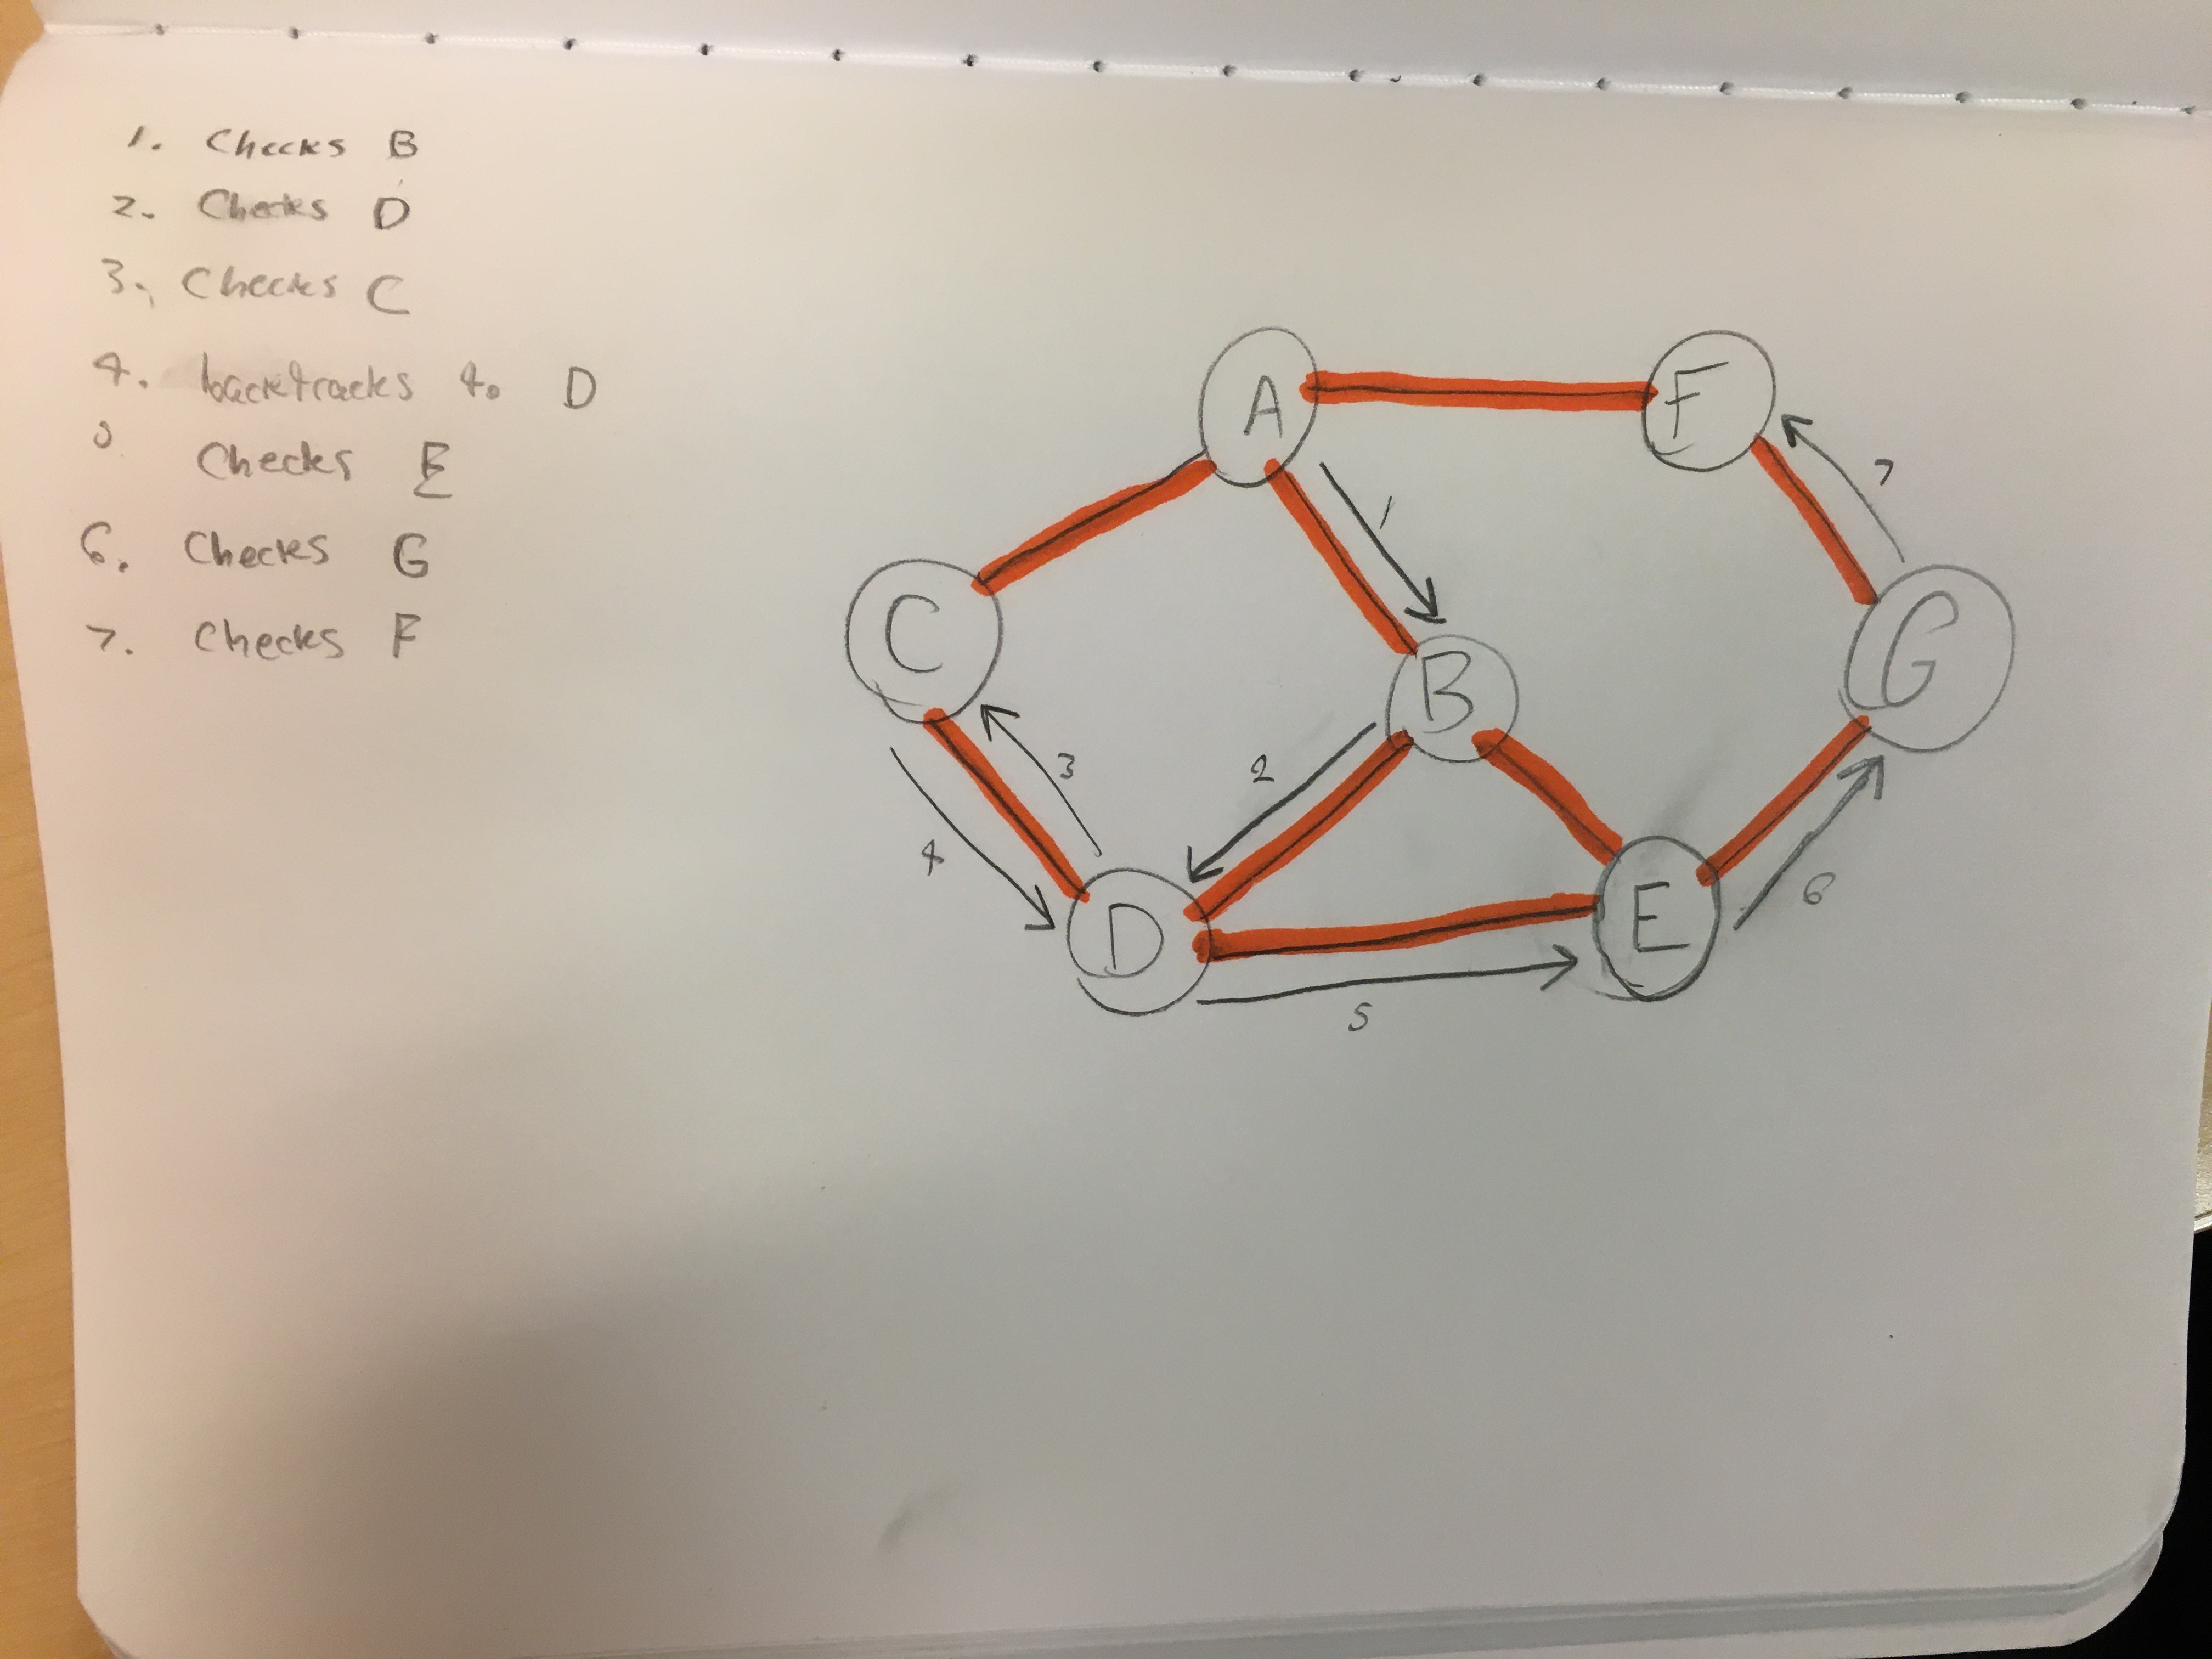 1. Checks B
2. Checks D
3. Checks C
4. backtracks to D
Checks E
6. Checks G
7. Checks F
A
F
1
7
C
B
G
3
2
4
D
E
6
5